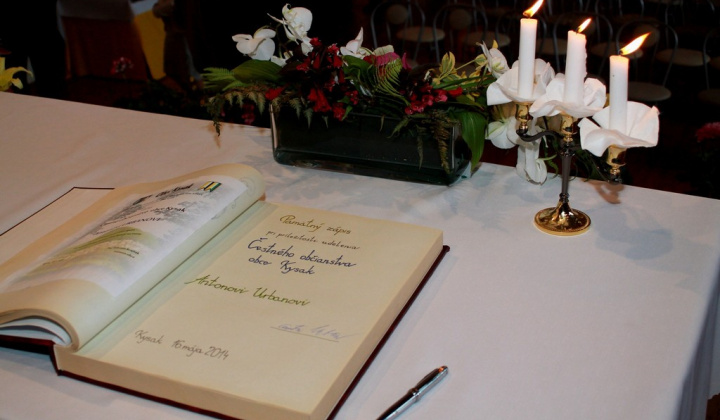 Pamätný zápis
pri príležitosti udelenia
Čestného občianstva
obce Kysak
Antonovi Urbanovi
Kysak 16 mája 2014